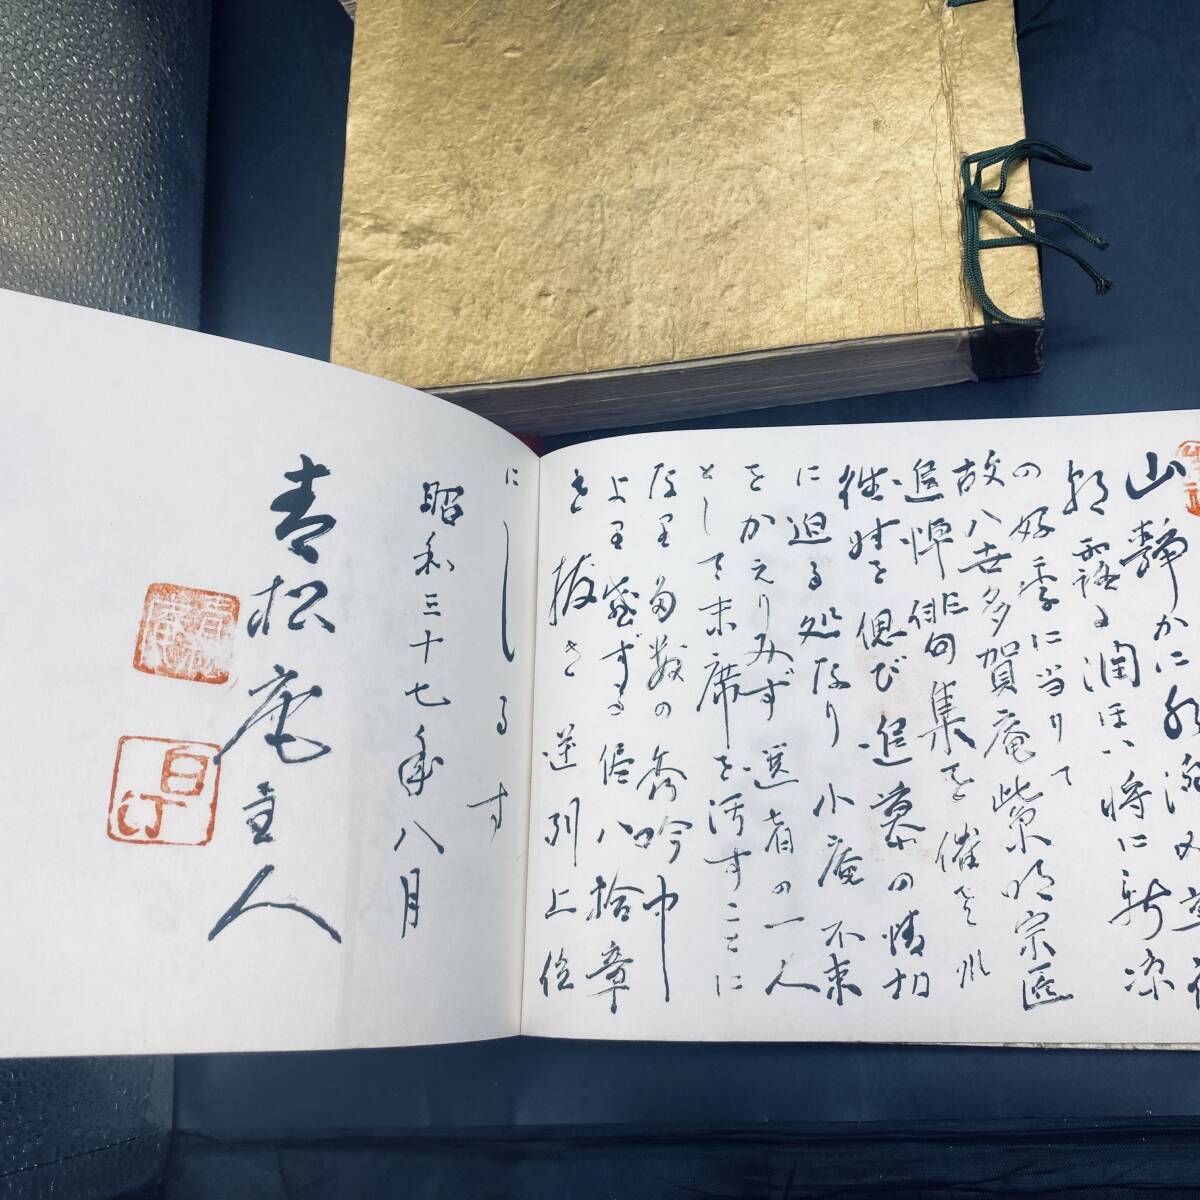 山静かに水澄み草花
朝露に潤ほい将に新涼
の好季に当りて
故八世多賀庵紫明宗匠
追悼俳句集を催さ
往時を偲び追慕の情切
に迫る処なり小庵不束
をかえりみず選者の一人
として末席を汚すことに
なり多数の秀吟中
より感ずる侭八拾章
を抜き逆列上位
にしるす
昭和三十七年八月
青松庵主人